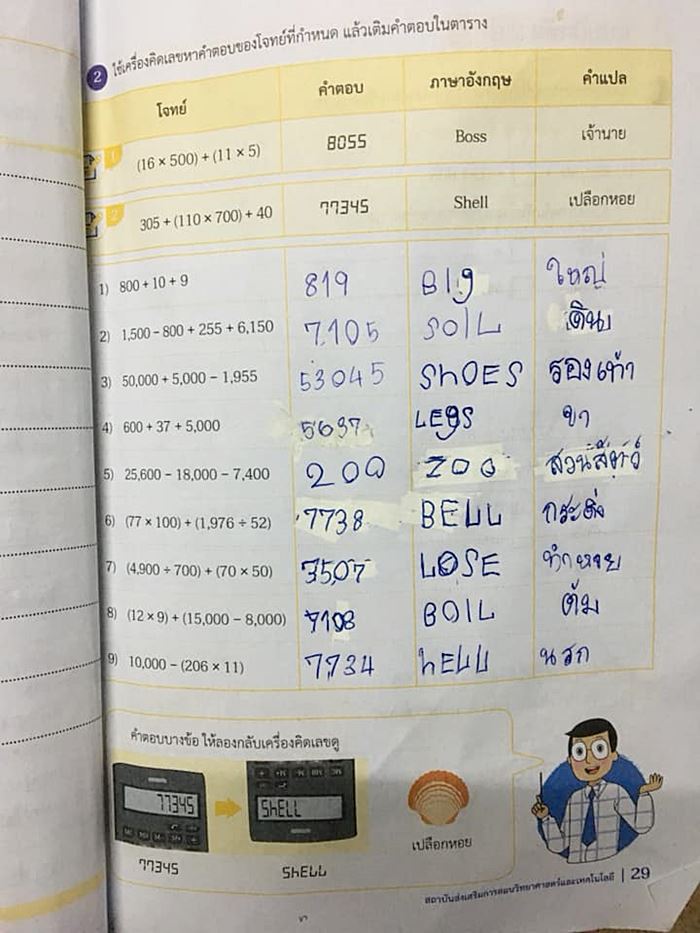 2 ใช้เครื่องคิดเลขหาคำตอบของโจทย์ที่กำหนด แล้วเติมคำตอบในตาราง
โจทย์ คำตอบ ภาษาอังกฤษ คำแปล
1 (16 × 500) + (11 × 5) 8055 Boss เจ้านาย
2 305 + (110 × 700) + 40 77345 Shell เปลือกหอย
1) 800 + 10 + 9 819 BIg ใหญ่
2) 1,500 – 800 + 255 + 6,150 7,105 SOIL ดิน
3) 50,000 + 5,000 – 1,955 53045 ShOES รองเท้า
4) 600 + 37 + 5,000 5637 LEgS ขา
5) 25,600 – 18,000 – 7,400 200 ZOO สวนสัตว์
6) (77 × 100) + (1,976 ÷ 52) 7738 BELL กระดิ่ง
7) (4,900 ÷ 700) + (70 × 50) 3507 LOSE ทำหาย
8) (12 × 9) + (15,000 – 8,000) 7108 BOIL ต้ม
9) 10,000 – (206 × 11) 7,734 hELL นรก
คำตอบบางข้อ ให้ลองกลับเครื่องคิดเลขดู
77345 ShELL
เปลือกหอย
77345 ShELL
สถาบันส่งเสริมการสอนวิทยาศาสตร์และเทคโนโลยี | 29